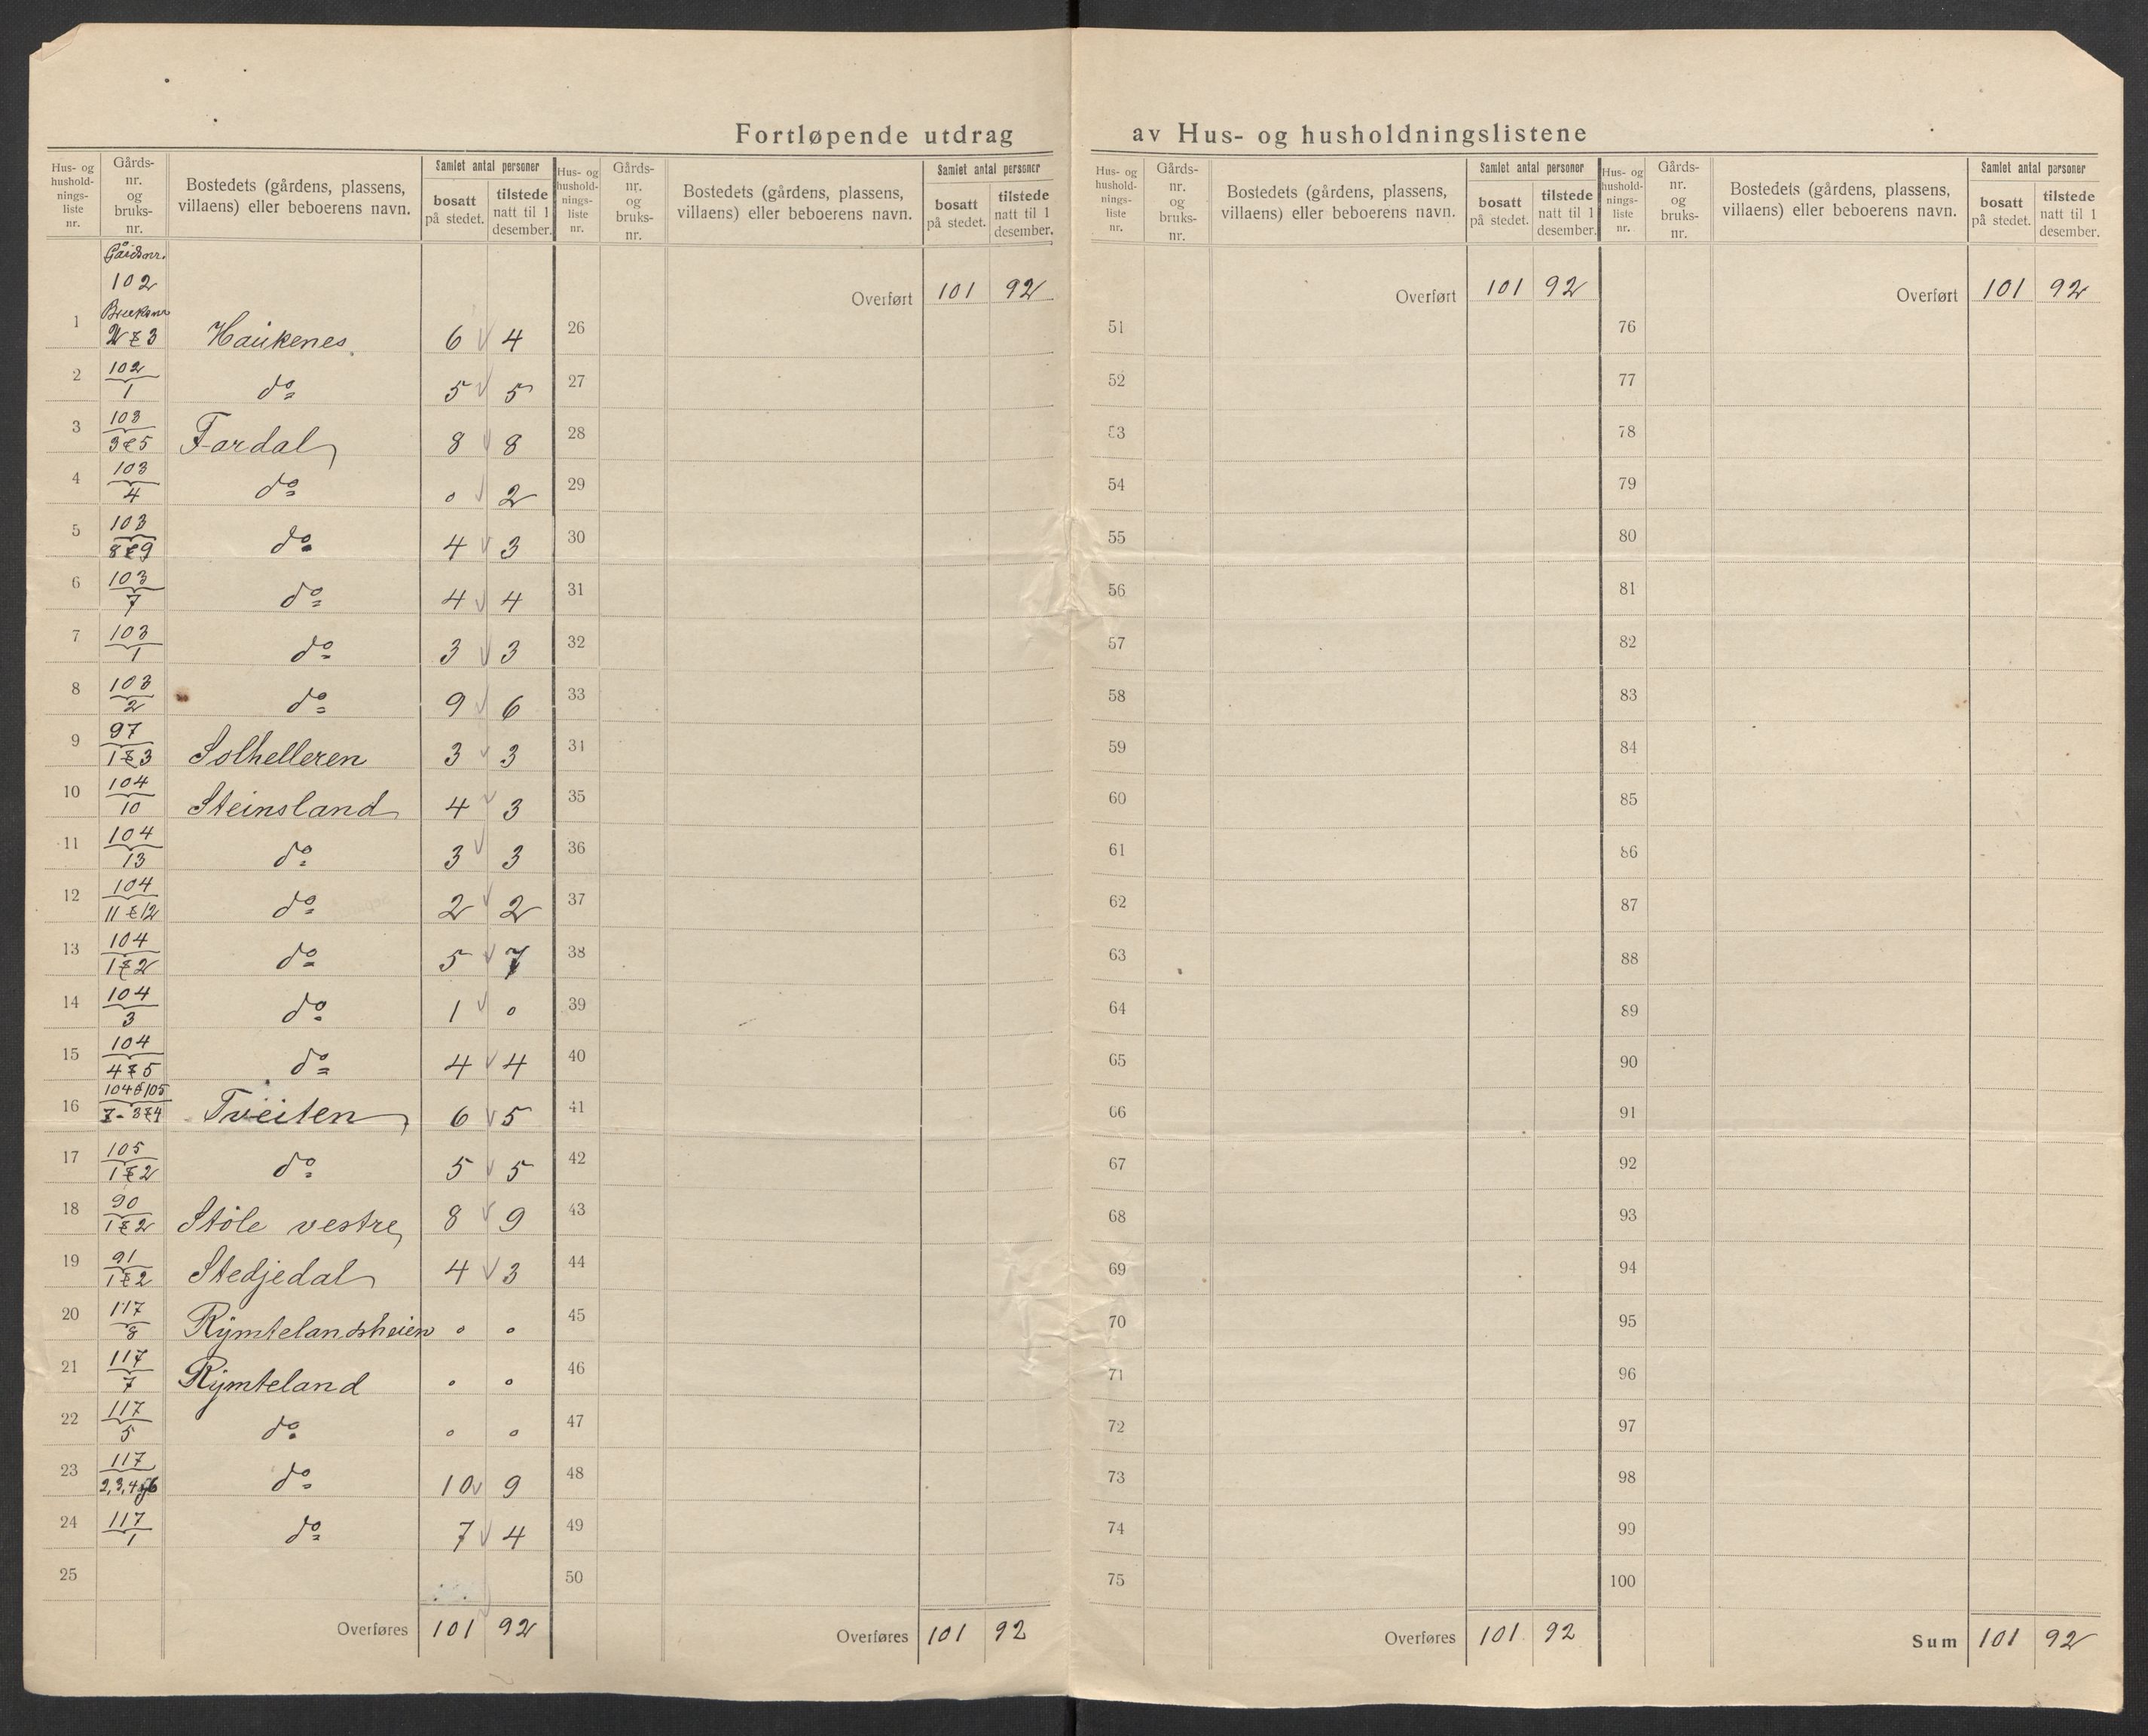 Fortløpende utdrag av Hus- og husholdningslistene
Hus- og husholdnings-liste nr. Gårds-nr. og bruks-nr. Bostedets (gårdens, plassens, villaens) eller beboerens navn. Samlet antal personer bosatt på stedet. tilstede natt til 1 desember.
Gårdsnr.
102
Bruksnr
1 2 & 3 Haukenes 6 4
2 102/1 do 5 5
3 103/3&5 Fardal 8 8
4 103/4 do 0 2
5 103/8&9 do 4 3
6 103/7 do 4 4
7 103/1 do 3 3
8 103/2 do 9 6
9 97/1&3 Solhelleren 3 3
10 104/10 Steinsland 4 3
11 104/13 do 3 3
12 104/11&12 do 2 2
13 104/1&2 do 5 7
14 104/3 do 1 0
15 104/4&5 do 4 4
16 104&105/7-3&4 Tveiten 6 5
17 105/1&2 do 5 5
18 90/1&2 Støle vestre 8 9
19 91/1&2 Stedjedal 4 3
20 117/8 Rymtelandsheien 0 0
21 117/7 Rymteland 0 0
22 117/5 do 0 0
23 117/2,3,4 6 do 10 9
24 117/1 do 7 4
25
Overføres 101 92
Hus- og husholdnings-liste nr. Gårds-nr. og bruks-nr. Bostedets (gårdens, plassens, villaens) eller beboerens navn. Samlet antal personer bosatt på stedet. tilstede natt til 1 desember.
Overført 101 92
26
27
28
29
30
31
32
33
34
35
36
37
38
39
40
41
42
43
44
45
46
47
48
49
50
Overføres 101 92
Hus- og husholdnings-liste nr. Gårds-nr. og bruks-nr. Bostedets (gårdens, plassens, villaens) eller beboerens navn. Samlet antal personer bosatt på stedet. tilstede natt til 1 desember.
Overført 101 92
51
52
53
54
55
56
57
58
59
60
61
62
63
64
65
66
67
68
69
70
71
72
73
74
75
Overføres 101 92
Hus- og husholdnings-liste nr. Gårds-nr. og bruks-nr. Bostedets (gårdens, plassens, villaens) eller beboerens navn. Samlet antal personer bosatt på stedet. tilstede natt til 1 desember.
Overført 101 92
76
77
78
79
80
81
82
83
84
85
86
87
88
89
90
91
92
93
94
95
96
97
98
99
100
Sum 101 92